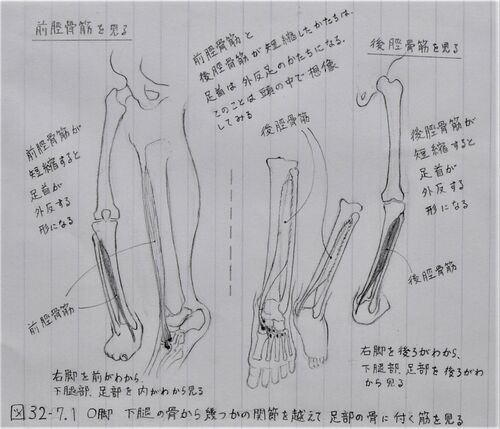 前脛骨筋を見る
前脛骨筋と
後脛骨筋が短縮したかたちは、
足首は外反足のかたちになる。
このことは頭の中で想像
してみる
後脛骨筋を見る
前脛骨筋が
短縮すると
足首が
外反する
形になる
後脛骨筋
後脛骨筋が
短縮すると
足首が
外反する
形になる
前脛骨筋
後脛骨筋
右脚を前がわから、
下腿部、足部を内がわから見る
右脚を後ろがわから、
下腿部、足部を後ろがわ
から見る
図32-7.1 O脚 下腿の骨から幾つかの関節を越えて足部の骨に付く筋を見る